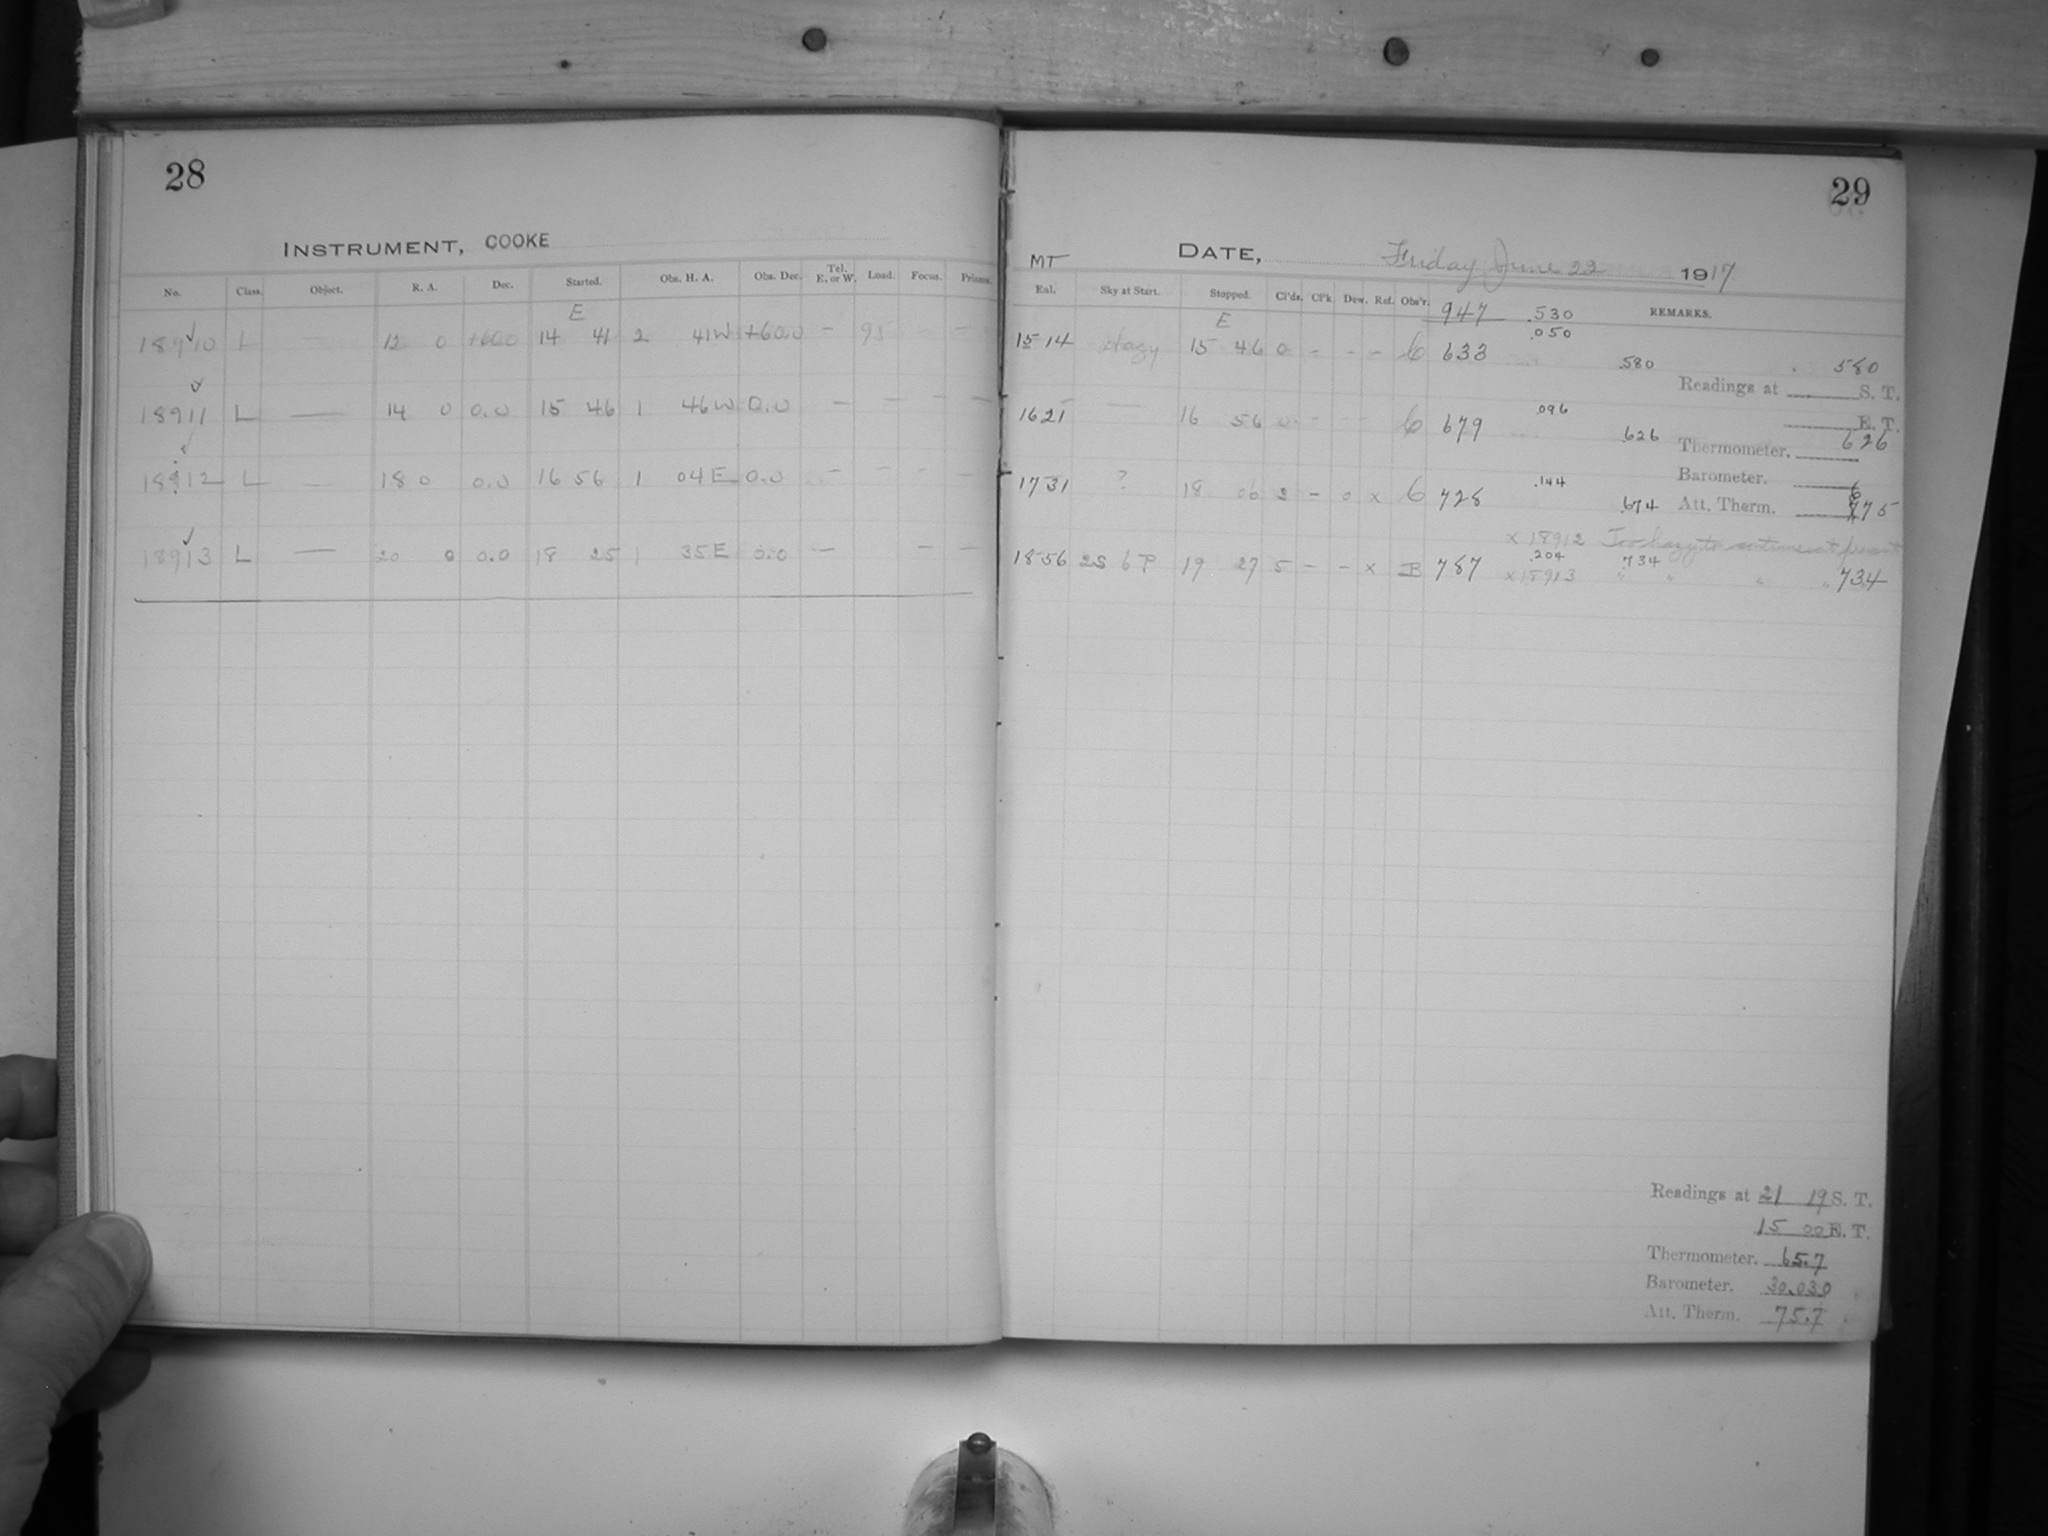 28
INSTRUMENT, COOKE
No. Class. Object. R. A. Dec. Started. Obs. H. A. Obs. Dec. Tel. E. or W. Load. Focus. Prisms.
E
18910 L — 12 0 +60.0 14 41 2 41W +60.0 — 95 — —
18911 L — 14 0 0.0 15 46 1 46W 0.0 — — — —
18912 L — 18 0 0.0 16 56 1 04E 0.0 — — - —
18913 L — 20 0 0.0 18 25 1 35E 0.0 — — —
29
MT DATE, Friday June 22 1917
Eql. Sky at Start. Stopped. Cl'ds. Cl'k Dew. Ref. Obs'r. 947 .530 REMARKS.
E .050
15 14 Hazy 15 46 0 - - - 6 633 .580 580
Readings at S. T.
.096
16 21 — 16 56 0 - - - 6 679 .626 626
E. T.
Thermometer.
Barometer.
.144
17 31 ? 18 06 2 - 0 x 6 728 .674 Att. Therm. 775
x 18912 Too hazy to continue at present
.204
18 56 2S 6P 19 27 5 - - x B 787 734 734
x 18913 " " " "
Readings at 21 19 S. T.
15 00 E. T.
Thermometer. 65.7
Barometer. 30.030
Att. Therm. 75.7